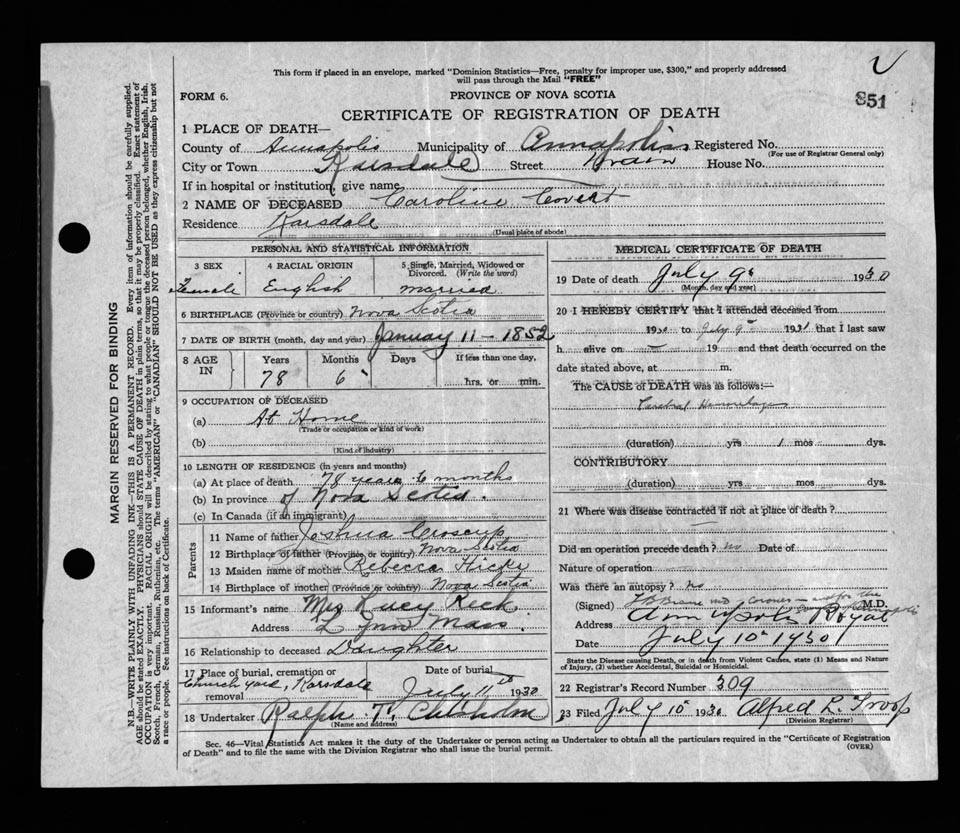 This form if placed in an envelope, marked "Dominion Statistics—Free, penalty for improper use, $300," and properly addressed
will pass through the Mail "FREE"
851
FORM 6.
PROVINCE OF NOVA SCOTIA
CERTIFICATE OF REGISTRATION OF DEATH
1 PLACE OF DEATH—
County of Annapolis Municipality of Annapolis Registered No.
(For use of Registrar General only)
City or Town Karsdale Street House No.
If in hospital or institution, give name
2 NAME OF DECEASED Caroline Covert
Residence Karsdale
(Usual place of abode)
PERSONAL AND STATISTICAL INFORMATION
3 SEX
Female
4 RACIAL ORIGIN
English
5 Single, Married, Widowed or
Divorced. (Write the word)
married
6 BIRTHPLACE (Province or country) Nova Scotia
7 DATE OF BIRTH (month, day and year) January 11 - 1852
8 AGE IN
Years Months Days If less than one day,
78 6 hrs. or min.
9 OCCUPATION OF DECEASED
(a) At Home
(Trade or occupation or kind of work)
(b)
(Kind of Industry)
10 LENGTH OF RESIDENCE (in years and months)
(a) At place of death 78 years 6 months
(b) In province of Nova Scotia.
(c) In Canada (if an immigrant)
Parents
11 Name of father Joshua Croscup
12 Birthplace of father (Province, or country) Nova Scotia
13 Maiden name of mother Rebecca Hicks
14 Birthplace of mother (Province or country) Nova Scotia
15 Informant's name Mrs Lucy Rich
Address Lynn Mass.
16 Relationship to deceased Daughter
17 Place of burial, cremation or
removal Church yard, Karsdale
Date of burial
July 11th 1930
18 Undertaker Ralph T. Chisholm
(Name and address)
MEDICAL CERTIFICATE OF DEATH
19 Date of death July 9th 1930
(Month, day and year)
20 I HEREBY CERTIFY that I attended deceased from
1930 to July 9th 1931 that I last saw
h alive on — 19 and that death occurred on the
date stated above, at m.
The CAUSE of DEATH was as follows:—
Cerebral Hemorrhage
(duration) yrs 1 mos dys.
CONTRIBUTORY
(duration) yrs mos dys.
21 Where was disease contracted if not at place of death?
—
Did an operation precede death? no Date of
Nature of operation
Was there an autopsy? no
(Signed) M.D.
Address Annapolis Royal
Date July 10th 1930
State the Disease causing Death, or in death from Violent Causes, state (1) Means and Nature
of Injury, (2) whether Accidental, Suicidal or Homicidal.
22 Registrar's Record Number 309
23 Filed July 10th 1930 Alfred L. Troop
(Division Registrar)
Sec. 46—Vital Statistics Act makes it the duty of the Undertaker or person acting as Undertaker to obtain all the particulars required in the "Certificate of Registration
of Death" and to file the same with the Division Registrar who shall issue the burial permit.
(OVER)
MARGIN RESERVED FOR BINDING
N.B.—WRITE PLAINLY WITH UNFADING INK—THIS IS A PERMANENT RECORD. Every item of information should be carefully supplied.
AGE should be stated EXACTLY. PHYSICIANS should STATE CAUSE OF DEATH in plain terms, so that it may be properly classified. Exact statement of
OCCUPATION is very important. RACIAL ORIGIN will be described by stating to what people or tongue the deceased person belonged, whether English, Irish,
Scotch, French, German, Russian, Ruthenian, etc. The terms "AMERICAN" or "CANADIAN" SHOULD NOT BE USED as they express citizenship but not
a race or people. See instructions on back of Certificate.